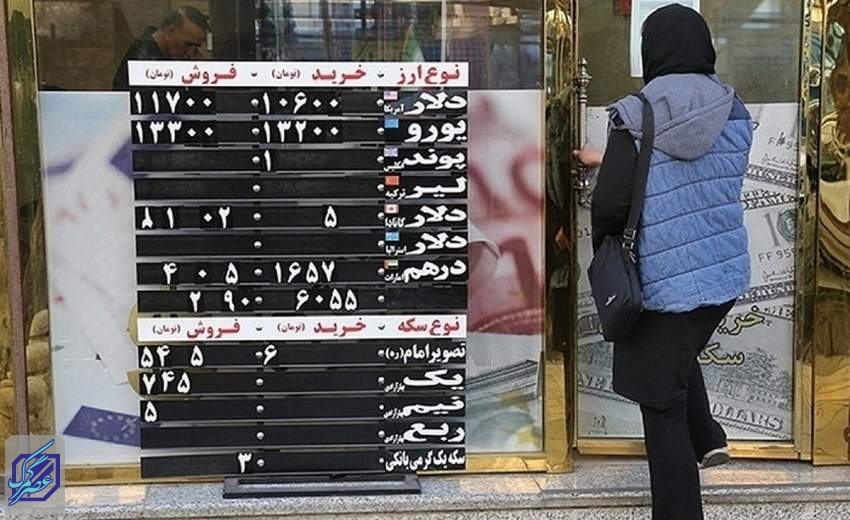 نوع ارز - خرید (تومان) - فروش (تومان)
دلار آمریکا ۱۰۶۰۰ ۱۱۷۰۰
یورو ۱۳۲۰۰ ۱۳۳۰۰
پوند انگلیس ۱
لیر ترکیه
دلار کانادا ۵ ۰۲
دلار استرالیا
درهم امارات ۱۶۵۷ ۴۰۵
۶۰۵۵ ۲۹۰
نوع سکه - خرید (تومان) - فروش (تومان)
تصویر امام (ره) ۶ ۵۴۵
یک بهارآزادی ۷۴۵
نیم بهارآزادی ۵
ربع بهارآزادی
سکه یک گرمی بانکی ۳
خرید
سک
DOLLARS
عصر گرگ